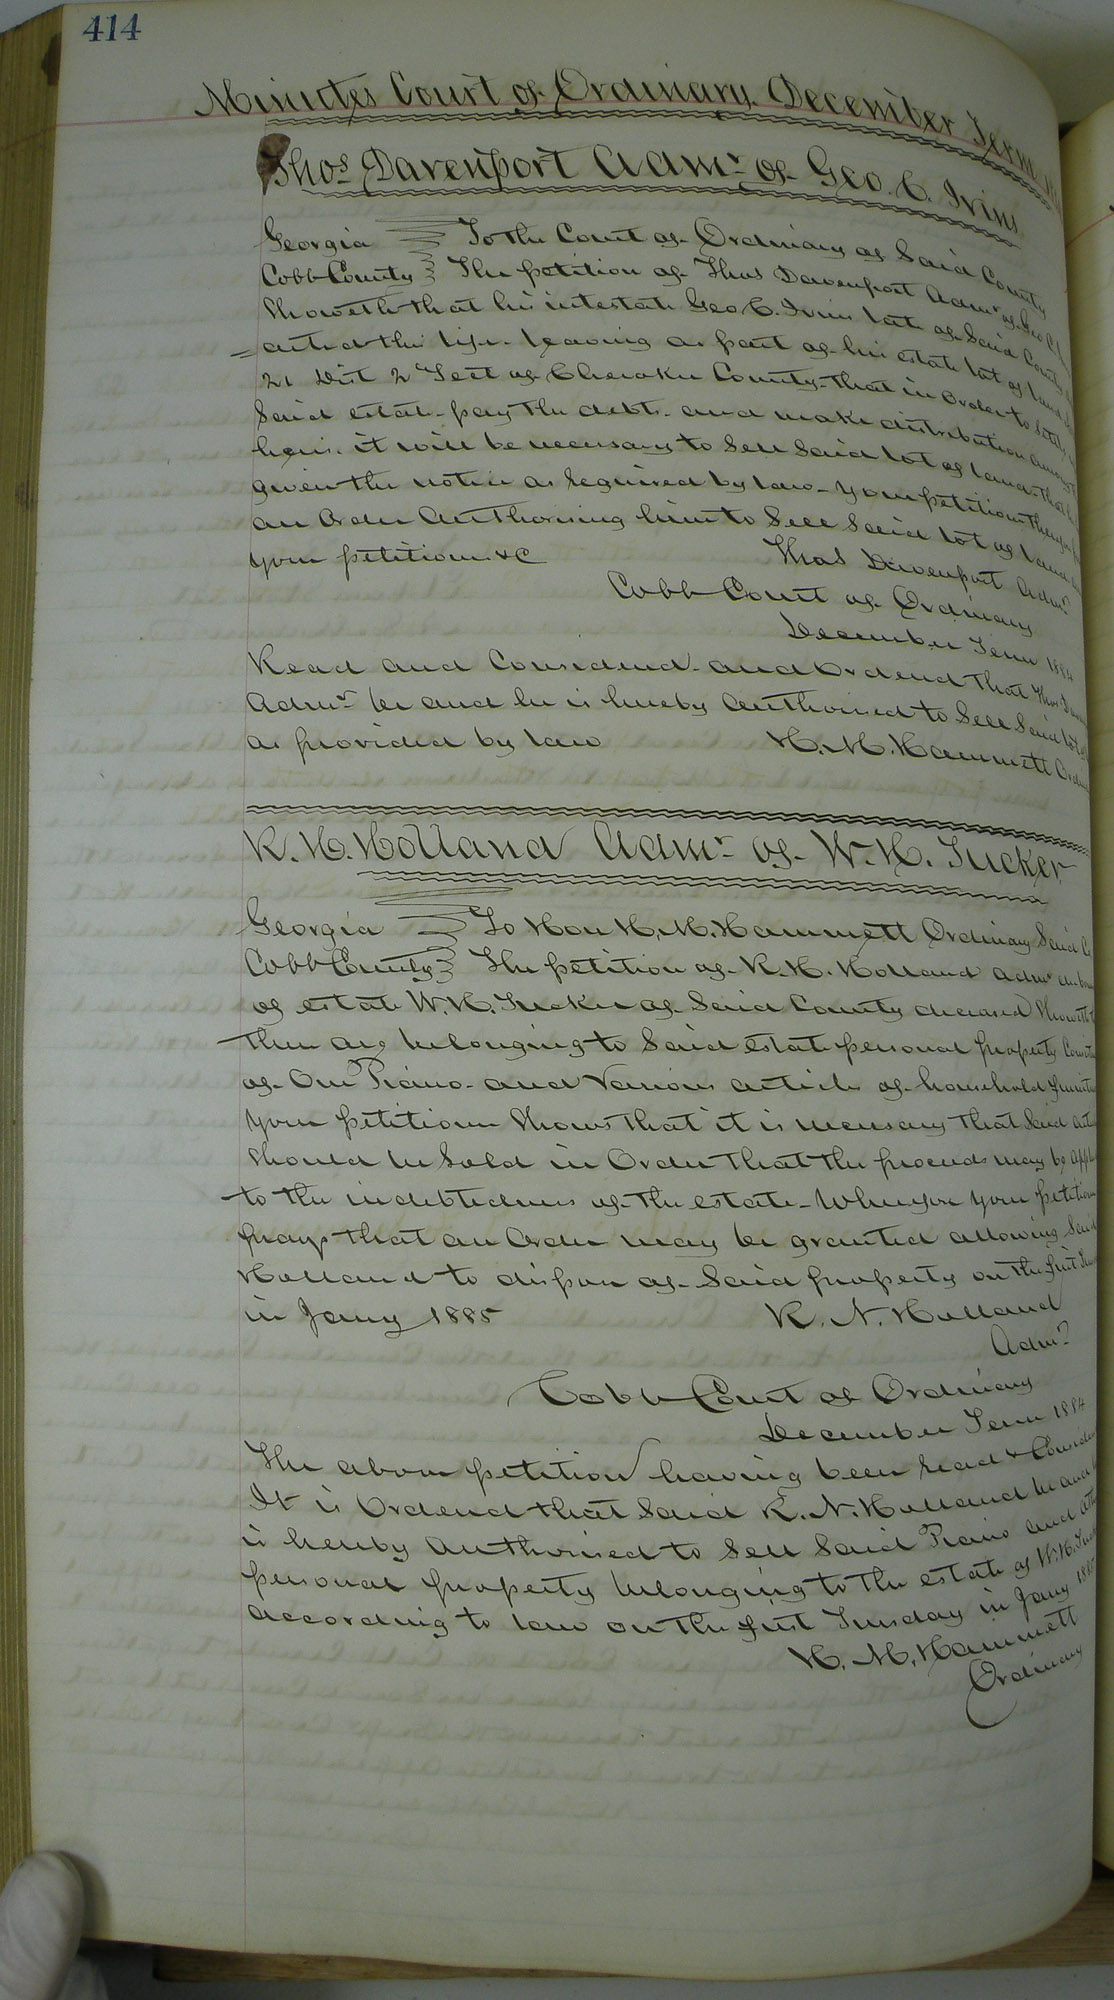 414
Minutes Court of Ordinary December Term
Thos Davenport Admr of Geo. C. Ivins
Georgia To the Court of Ordinary of Said County
Cobb County The petition of Thos Davenport Admr of Geo C
Showeth that his intestate Geo C. Ivins late of Said County
arted this life leaving as part of his estate lot of land
21 Dist 2 Sect of Cherokee County that in Order to settle
Said estate pay the debts and make distribution among
heirs it will be necessary to Sell Said lot of land that
given the notice as required by law your petitioner therefore
an Order Authorising him to Sell Said lot of land
your petitioner &c Thos Davenport Admr
Cobb Court of Ordinary
December Term 1884
Read and Considered and Ordered that Thos
Admr be and he is hereby Authorised to Sell Said lot
as provided by law H. M. Hammett
R. N. Holland Admr of W. H. Tucker
Georgia To Hon H. M. Hammett Ordinary Said
Cobb County The petition of R. N. Holland admr
of estate W. H. Tucker of Said County deceased Showeth
there are belonging to Said estate personal property
of One Piano and Various articles of household
your petitioner Shows that it is necessary that Said
Should be Sold in Order that the proceeds may be
to the indebtedness of the estate Wherefore your
prays that an Order may be granted allowing Said
Holland to dispose of Said property on the first
in Jany 1885 R. N. Holland
Admr
Cobb Court of Ordinary
December Term 1884
The above petition having been read &
It is Ordered that Said R. N. Holland be and
is hereby Authorised to Sell Said Piano and
personal property belonging to the estate of W. H.
according to law on the first Tuesday in Jany 1885
H. M. Hammett
Ordinary